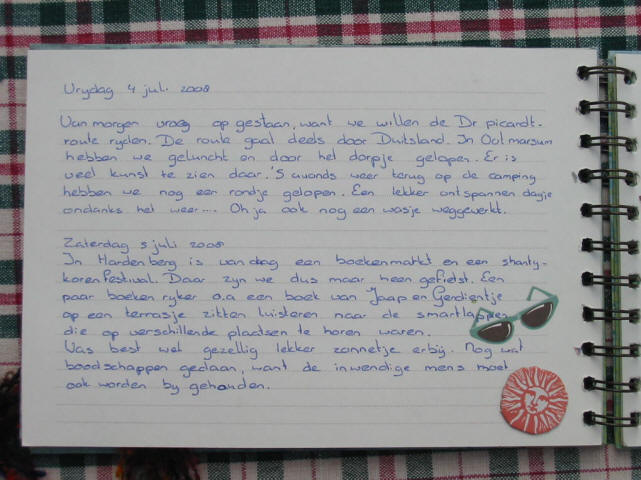 Vrydag 4 juli. 2008
Van morgen vroeg op gestaan, want we willen de Dr picardt-
route ryden. De route gaat deels door Duitsland. In Ootmarsum
hebben we geluncht en door het dorpje gelopen. Er is
veel kunst te zien daar. 'S avonds weer terug op de camping
hebben we nog een rondje gelopen. Een lekker ontspannen dagje
ondanks het weer.... Oh ja ook nog een wasje weggewerkt.
Zaterdag 5 juli 2008
In Hardenberg is vandaag een boekenmarkt en een shanty-
korenfestival. Daar zyn we dus maar heen gefietst. Een
paar boeken ryker o.a een boek van Jaap en Gerdientje
op een terrasje zitten luisteren naar de smartlappen
die op verschillende plaatsen te horen waren.
Was best wel gezellig lekker zonnetje erbij. Nog wat
boodschappen gedaan, want de inwendige mens moet
ook worden by gehouden.